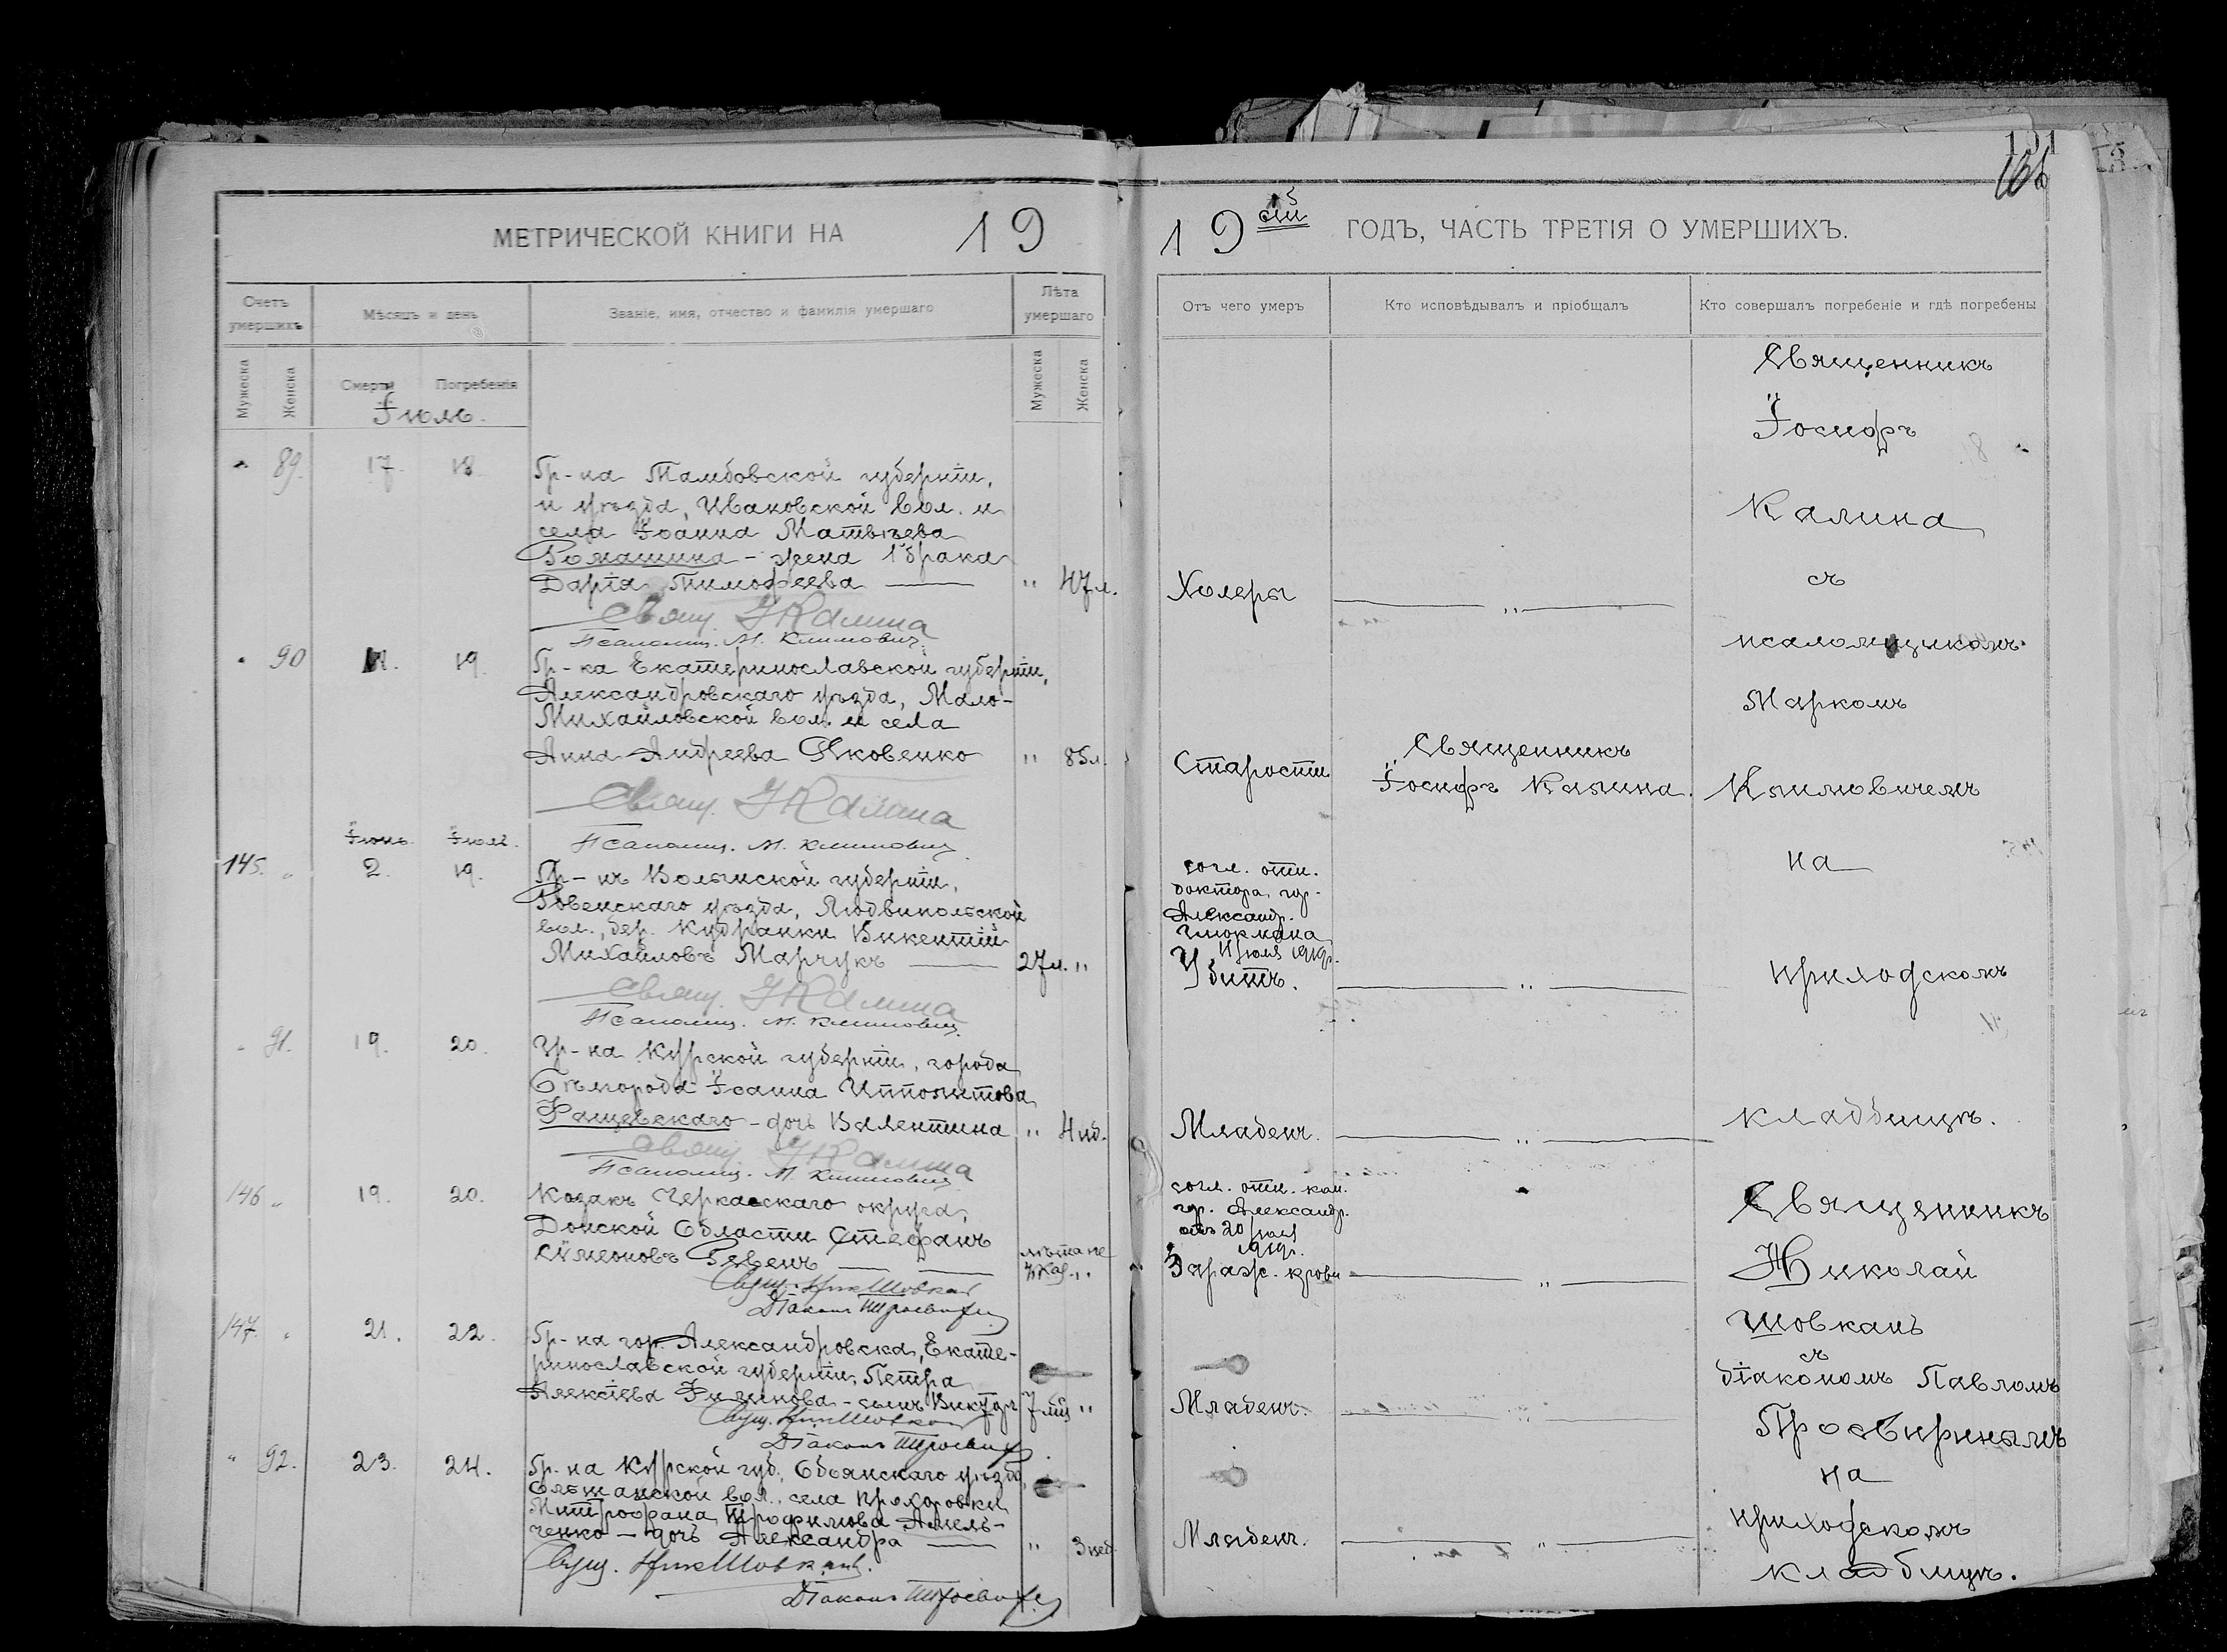 МЕТРИЧЕСКОЙ КНИГИ НА 19
Счетъ умершихъ
Мѣсяцъ и день
Званіе, имя, отчество и фамилія умершаго
Лѣта умершаго
Мужеска
Женска
Смерти
Погребенія
Мужеска
Женска
Іюль.
89. 17. 18. Гр-на Тамбовской губерніи,
и уѣзда, Ивановской вол. и
села Іоанна Матвѣева
Ромашина - жена 1 брака
Дарія Тимофеева " 47 л.
Свящ. І Калина
Псаломщ. М. Климовичъ
90 19. Гр-ка Екатеринославской губерніи,
Александровскаго уѣзда, Мало-
Михайловской вол. и села
Анна Андреева Яковенко " 85 л.
Свящ. І Калина
Псаломщ. М. Климовичъ
Іюнь. Іюль.
145. " 2. 19. Гр-нъ Волынской губерніи,
Ровенскаго уѣзда, Людвипольской
вол., дер. Кудранки Викентій
Михайловъ Марчукъ 27 л. "
Свящ. І Калина
Псаломщ. М. Климовичъ
91. 19. 20. Гр-на Курской губерніи, города
Бѣлгорода Іоанна Ипполитова
Фащевскаго - дочь Валентина " 4 нд.
Свящ. І Калина
Псаломщ. М. Климовичъ
146 " 19. 20. Козакъ Черкасскаго округа,
Донской Области Стефанъ
Сѵмеоновъ Ревенъ лѣта не
Свящ. Ник Шовкан
Діаконъ
147. " 21. 22. Гр-на гор. Александровска, Екате-
ринославской губерніи, Петра
Алексѣева - сынъ Викторъ 7 мц "
Свящ. Ник Шовкан
Діаконъ
" 92. 23. 24. Гр-на Курской губ., Обоянскаго уѣзда,
Ольшанской вол., села Прохоровки
Митрофана Трофимова Амель-
ченко - дочь Александра " 3 нед.
Свящ. Ник Шовкань.
Діаконъ
19 ГОДЪ, ЧАСТЬ ТРЕТІЯ О УМЕРШИХЪ.
131
Отъ чего умеръ
Кто исповѣдывалъ и пріобщалъ
Кто совершалъ погребеніе и гдѣ погребены
Холеры
Старости
Священникъ
Іосифъ Калина.
согл. отн.
доктора гор.
Александр.
Глюкмана
11 іюля 1919 г.
Убитъ.
Младенч.
согл. отн. ком.
гор. Александр.
отъ 20 іюля
1919 г.
Зараж. крови
Младенч.
Младенч.
Священникъ
Іосифъ
Калина
съ
псаломщикомъ
Маркомъ
Климовичемъ
на
приходскомъ
кладбищѣ.
Священникъ
Николай
Шовкань
съ
діакономъ Павломъ
Просвиринымъ
на
приходскомъ
кладбищѣ.